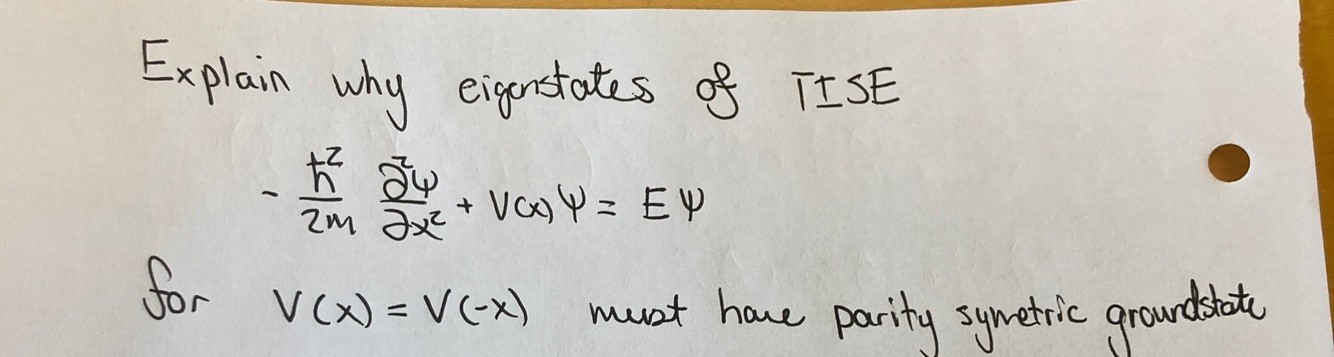 Explain why eigenstates of TISE
- ħ²/2m ∂²ψ/∂x² + V(x)ψ = Eψ
for V(x) = V(-x) must have parity symetric groundstate